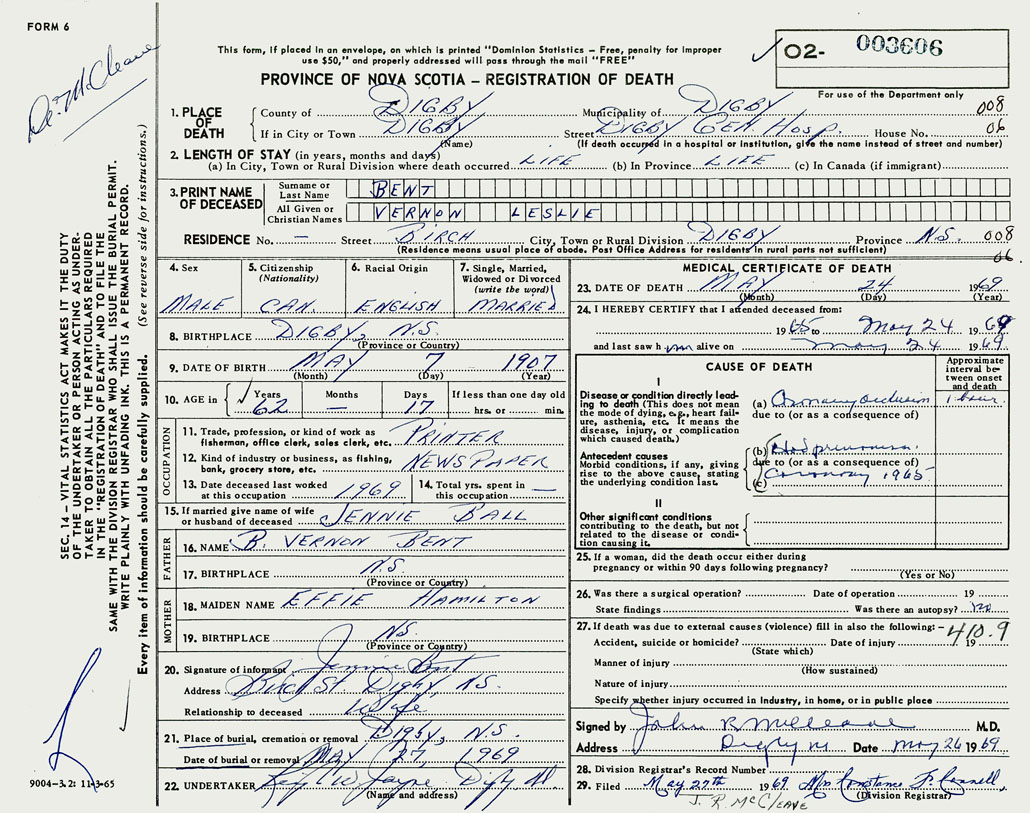 FORM 6
Dr. McCleave
This form, if placed in an envelope, on which is printed "Dominion Statistics – Free, penalty for improper
use $50," and properly addressed will pass through the mail "FREE"
PROVINCE OF NOVA SCOTIA – REGISTRATION OF DEATH
✓ O2- 003606
For use of the Department only
1. PLACE OF DEATH
County of DIGBY Municipality of DIGBY 008
If in City or Town DIGBY Street DIGBY GEN. HOSP. House No. 06
(Name) (If death occurred in a hospital or institution, give the name instead of street and number)
2. LENGTH OF STAY (in years, months and days)
(a) In City, Town or Rural Division where death occurred LIFE (b) In Province LIFE (c) In Canada (if immigrant)
3. PRINT NAME OF DECEASED
Surname or Last Name BENT
All Given or Christian Names VERNON LESLIE
RESIDENCE No. — Street BIRCH City, Town or Rural Division DIGBY Province N.S. 008
(Residence means usual place of abode. Post Office Address for residents in rural parts not sufficient) 06
4. Sex MALE
5. Citizenship (Nationality) CAN.
6. Racial Origin ENGLISH
7. Single, Married, Widowed or Divorced (write the word) MARRIED
8. BIRTHPLACE DIGBY, N.S.
(Province or Country)
9. DATE OF BIRTH MAY 7 1907
(Month) (Day) (Year)
10. AGE in ✓ Years 62 Months — Days 17 If less than one day old hrs. or min.
OCCUPATION
11. Trade, profession, or kind of work as fisherman, office clerk, sales clerk, etc. PRINTER
12. Kind of industry or business, as fishing, bank, grocery store, etc. NEWSPAPER
13. Date deceased last worked at this occupation 1969
14. Total yrs. spent in this occupation —
15. If married give name of wife or husband of deceased JENNIE BALL
FATHER
16. NAME B. VERNON BENT
17. BIRTHPLACE N.S.
(Province or Country)
MOTHER
18. MAIDEN NAME EFFIE HAMILTON
19. BIRTHPLACE N.S.
(Province or Country)
20. Signature of informant Jennie Bent
Address Birch St. Digby, N.S.
Relationship to deceased Wife
21. Place of burial, cremation or removal DIGBY, N.S.
Date of burial or removal MAY 27, 1969
22. UNDERTAKER
(Name and address)
MEDICAL CERTIFICATE OF DEATH
23. DATE OF DEATH MAY 24 1969
(Month) (Day) (Year)
24. I HEREBY CERTIFY that I attended deceased from:
1965 to May 24 1969
and last saw him alive on May 24 1969
CAUSE OF DEATH
Approximate interval between onset and death
I
Disease or condition directly leading to death (This does not mean the mode of dying, e.g., heart failure, asthenia, etc. It means the disease, injury, or complication which caused death.)
(a) Coronary occlusion 1 hour
due to (or as a consequence of)
Antecedent causes
Morbid conditions, if any, giving rise to the above cause, stating the underlying condition last.
(b) Had previous
due to (or as a consequence of)
(c) Coronary 1965
II
Other significant conditions contributing to the death, but not related to the disease or condition causing it.
25. If a woman, did the death occur either during pregnancy or within 90 days following pregnancy?
(Yes or No)
26. Was there a surgical operation? Date of operation 19
State findings Was there an autopsy? no
27. If death was due to external causes (violence) fill in also the following: – 410.9
Accident, suicide or homicide? Date of injury 19
(State which)
Manner of injury
(How sustained)
Nature of injury
Specify whether injury occurred in industry, in home, or in public place
Signed by John R McCleave M.D.
Address Digby NS Date May 26 1969
28. Division Registrar's Record Number
29. Filed May 27th 1969 Mrs Constance F. Connell
(Division Registrar)
J. R. McCLEAVE
SEC. 14 – VITAL STATISTICS ACT MAKES IT THE DUTY
OF THE UNDERTAKER OR PERSON ACTING AS UNDER-
TAKER TO OBTAIN ALL THE PARTICULARS REQUIRED
IN THE "REGISTRATION OF DEATH" AND TO FILE THE
SAME WITH THE DIVISION REGISTRAR WHO SHALL ISSUE THE BURIAL PERMIT.
WRITE PLAINLY WITH UNFADING INK. THIS IS A PERMANENT RECORD.
Every item of information should be carefully supplied. (See reverse side for instructions.)
9004–3.2: 11-3-65